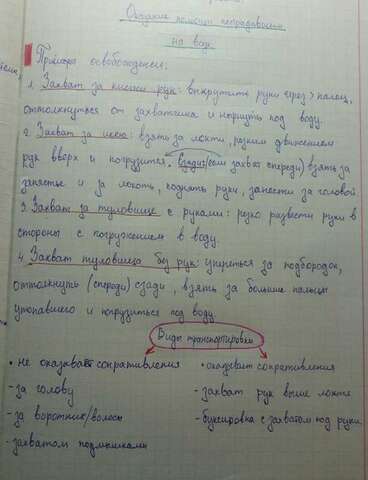 Оказание помощи пострадавшим
на воде.
Приёмы освобождения:
1. Захват за кисти рук: выкрутить руки через > палец,
оттолкнуться от захватчика и нырнуть под воду.
2. Захват за шею: взять за локти, резким движением
рук вверх и погрузится. (если захват спереди) взять за
запястье и за локоть, поднять руки, занести за головой
3. Захват за туловище с руками: резко развести руки в
стороны с погружением в воду.
4. Захват туловища без рук: упереться за подбородок,
оттолкнуть (спереди) сзади, взять за большие пальцы
утопавшего и погрузиться под воду.
Виды транспортировки
• не оказывает сопративления
- за голову
- за воротник/волосы
- захватом подмышками
• оказывает сопративления
- захват рук выше локтя
- буксировка с захватом под руки.